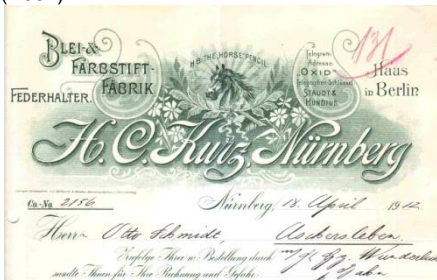 BLEI-&
FARBSTIFT-
FABRIK
FEDERHALTER.
H.B. THE HORSE PENCIL
Telegramm-
Adresse
OXID
STAUDT &
HUNDIUS
131
Haus
in Berlin
H. C. Kurz, Nürnberg
Cu.-No 2156
Nürnberg, 18. April 1912.
Herrn Otto Schmidt, Aschersleben.
Zufolge Ihrer w. Bestellung durch
sandte Ihnen für Ihre Rechnung und Gefahr